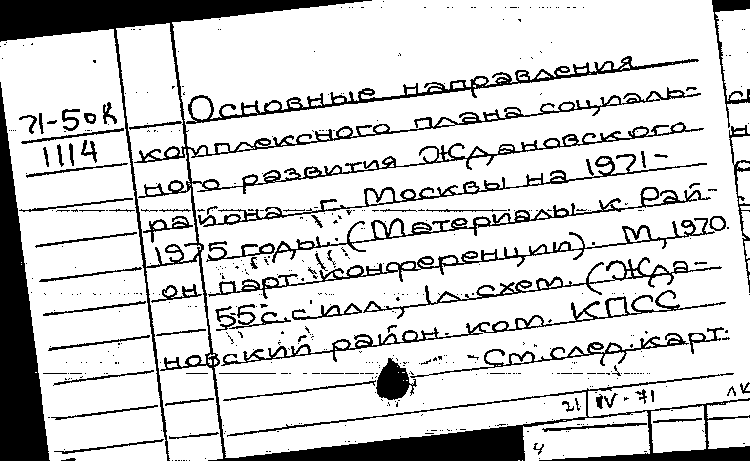 71-50к
1114
Основные направления
комплексного плана социаль-
ного развития Ждановского
района г. Москвы на 1971-
1975 годы. (Материалы к Рай-
он парт. конференции). М, 1970
55с. с илл.; 1л. схем. (Жда-
новский район. ком. КПСС
См. след. карт.
21 IV - 71